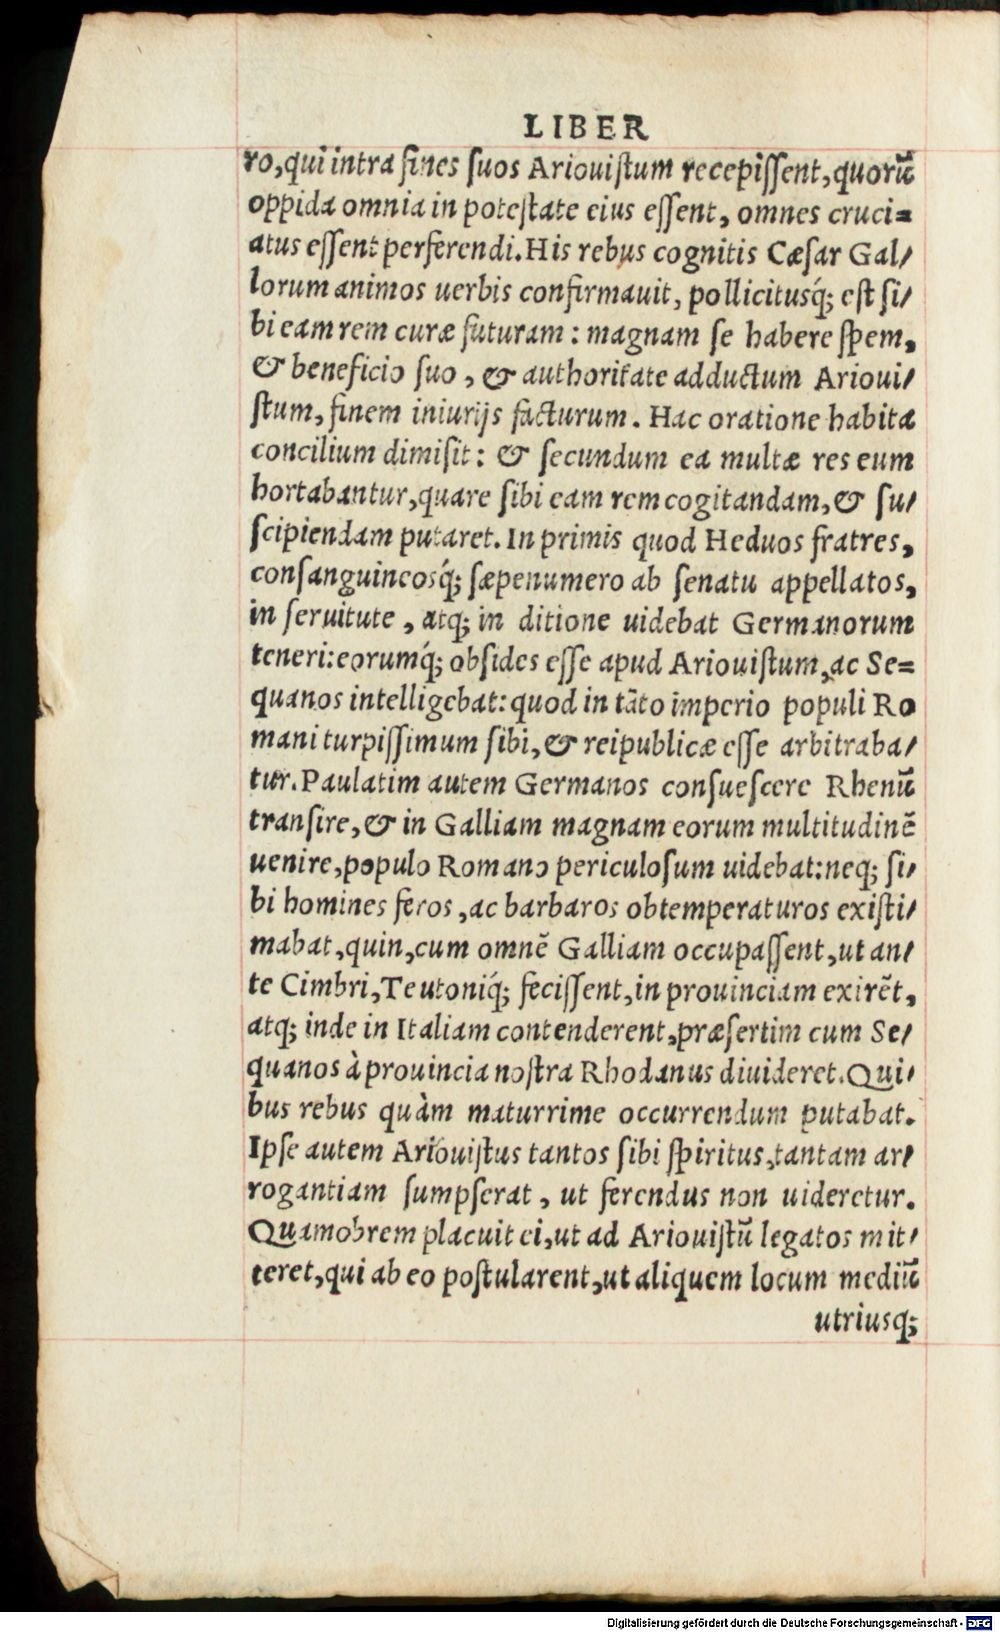 LIBER
ro,qui intra fines suos Ariouistum recepissent,quorũ
oppida omnia in potestate eius essent, omnes cruci=
atus essent perferendi.His rebus cognitis Cæsar Gal/
lorum animos uerbis confirmauit, pollicitusq́; est si/
bi eam rem curæ futuram: magnam se habere spem,
& beneficio suo, & authoritate adductum Arioui/
stum, finem iniurijs facturum. Hac oratione habita
concilium dimisit: & secundum ea multæ res eum
hortabantur,quare sibi eam rem cogitandam,& su/
scipiendam putaret. In primis quod Heduos fratres,
consanguineosq́; sæpenumero ab senatu appellatos,
in seruitute, atq; in ditione uidebat Germanorum
teneri:eorumq́; obsides esse apud Ariouistum,ac Se=
quanos intelligebat:quod in tãto imperio populi Ro
mani turpissimum sibi,& reipublicæ esse arbitraba/
tur.Paulatim autem Germanos consuescere Rhenũ
transire,& in Galliam magnam eorum multitudinẽ
uenire,populo Romano periculosum uidebat:neq; si/
bi homines feros,ac barbaros obtemperaturos existi/
mabat,quin,cum omnẽ Galliam occupassent,ut an/
te Cimbri,Teutoniq́; fecissent,in prouinciam exirẽt,
atq; inde in Italiam contenderent,præsertim cum Se/
quanos à prouincia nostra Rhodanus diuideret.Qui/
bus rebus quàm maturrime occurrendum putabat.
Ipse autem Ariouistus tantos sibi spiritus,tantam ar/
rogantiam sumpserat, ut ferendus non uideretur.
Quamobrem placuit ei,ut ad Ariouistũ legatos mit/
teret,qui ab eo postularent,ut aliquem locum mediũ
utriusq;
Digitalisierung gefördert durch die Deutsche Forschungsgemeinschaft - DFG